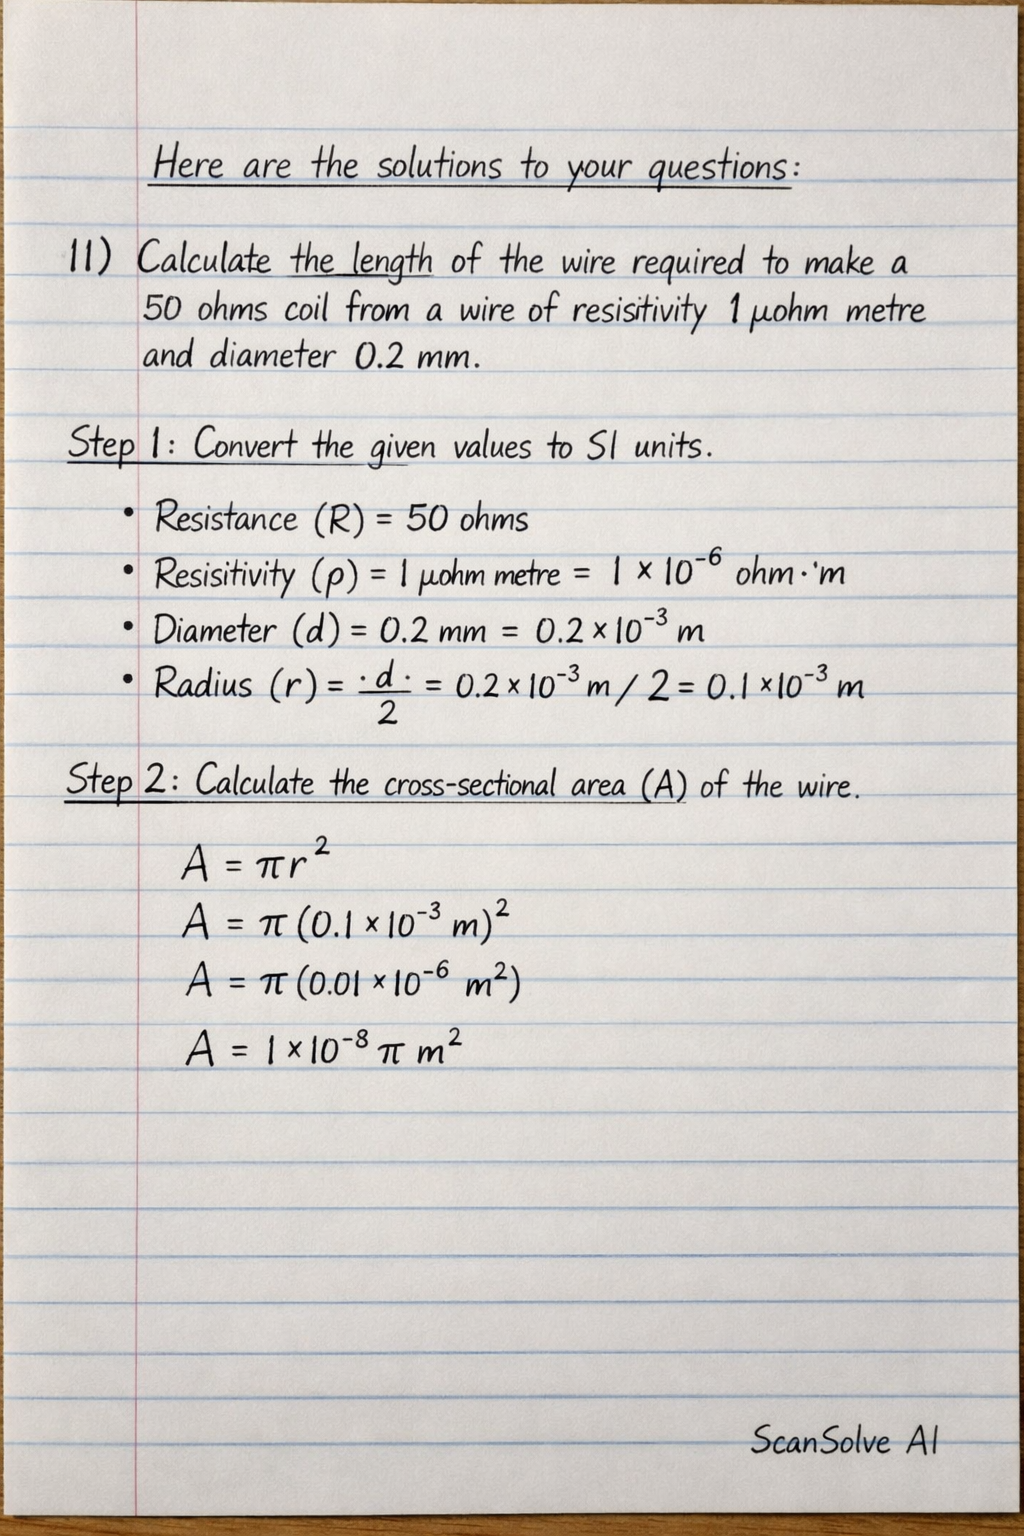 Here are the solutions to your questions:
11) Calculate the length of the wire required to make a
50 ohms coil from a wire of resisitivity 1 μohm metre
and diameter 0.2 mm.
Step 1: Convert the given values to SI units.
• Resistance (R) = 50 ohms
• Resisitivity (ρ) = 1 μohm metre = 1 × 10⁻⁶ ohm·'m
• Diameter (d) = 0.2 mm = 0.2 × 10⁻³ m
• Radius (r) = ·d·/2 = 0.2 × 10⁻³ m / 2 = 0.1 × 10⁻³ m
Step 2: Calculate the cross-sectional area (A) of the wire.
A = πr²
A = π (0.1 × 10⁻³ m)²
A = π (0.01 × 10⁻⁶ m²)
A = 1 × 10⁻⁸ π m²
ScanSolve AI